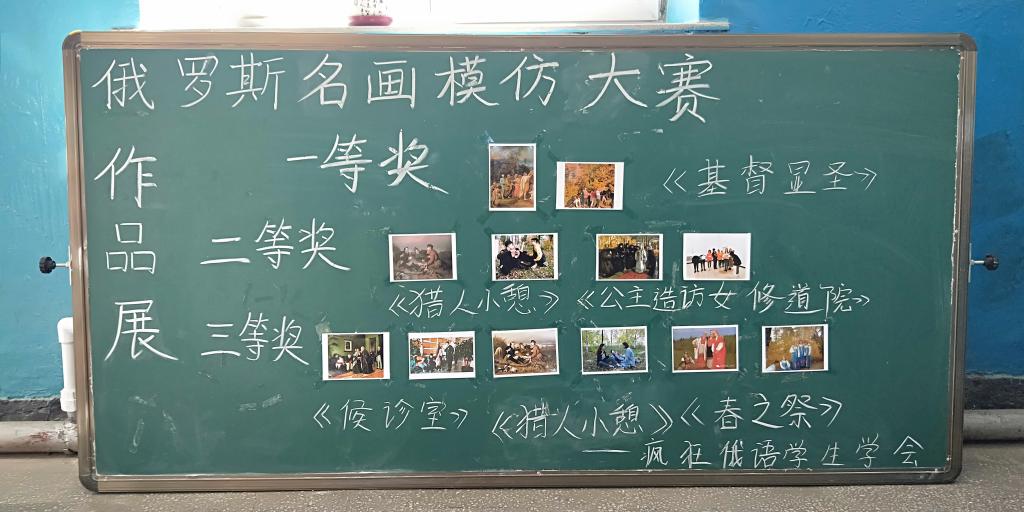 俄罗斯名画模仿大赛
作品展
一等奖
《基督显圣》
二等奖
《猎人小憩》 《公主造访女修道院》
三等奖
《候诊室》 《猎人小憩》 《春之祭》
——疯狂俄语学生学会